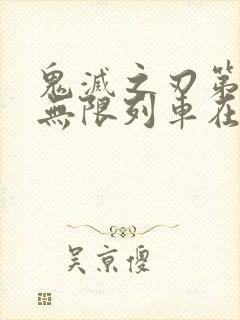 鬼滅之刃第
無限列車在
吴京傻